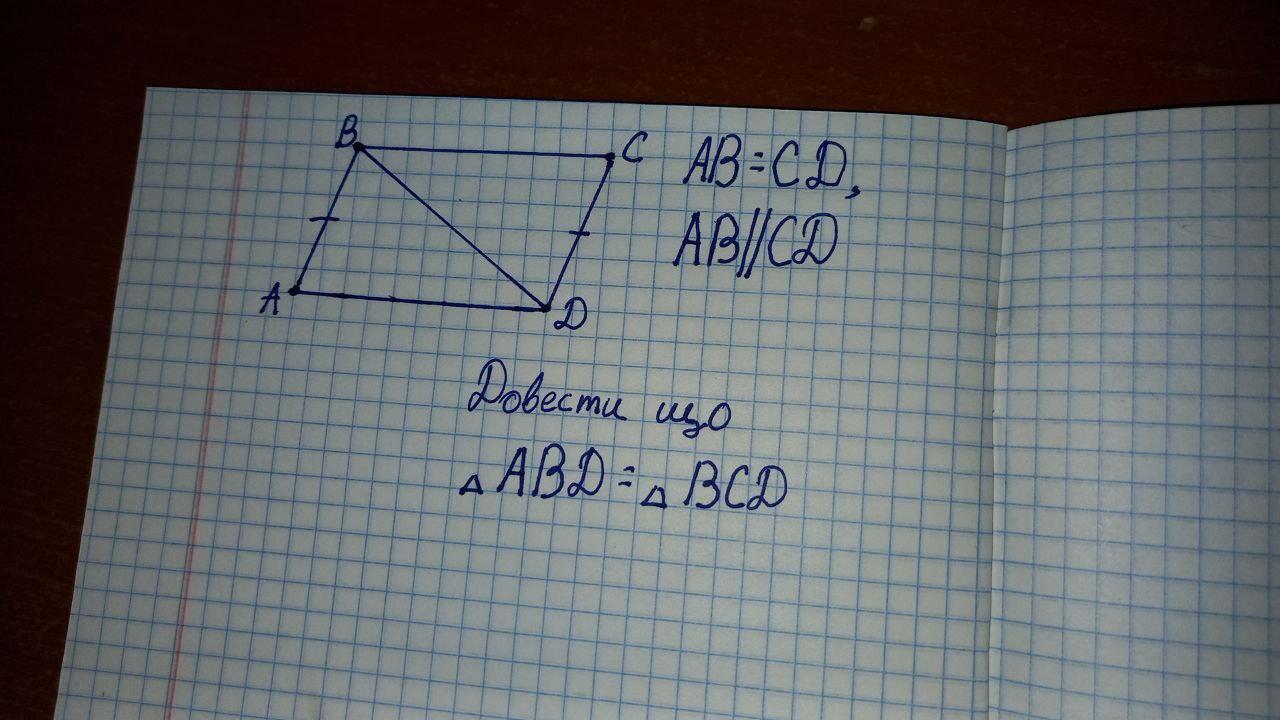 B
C
AB=CD,
AB//CD
A
D
Довести що
△ABD=△BCD